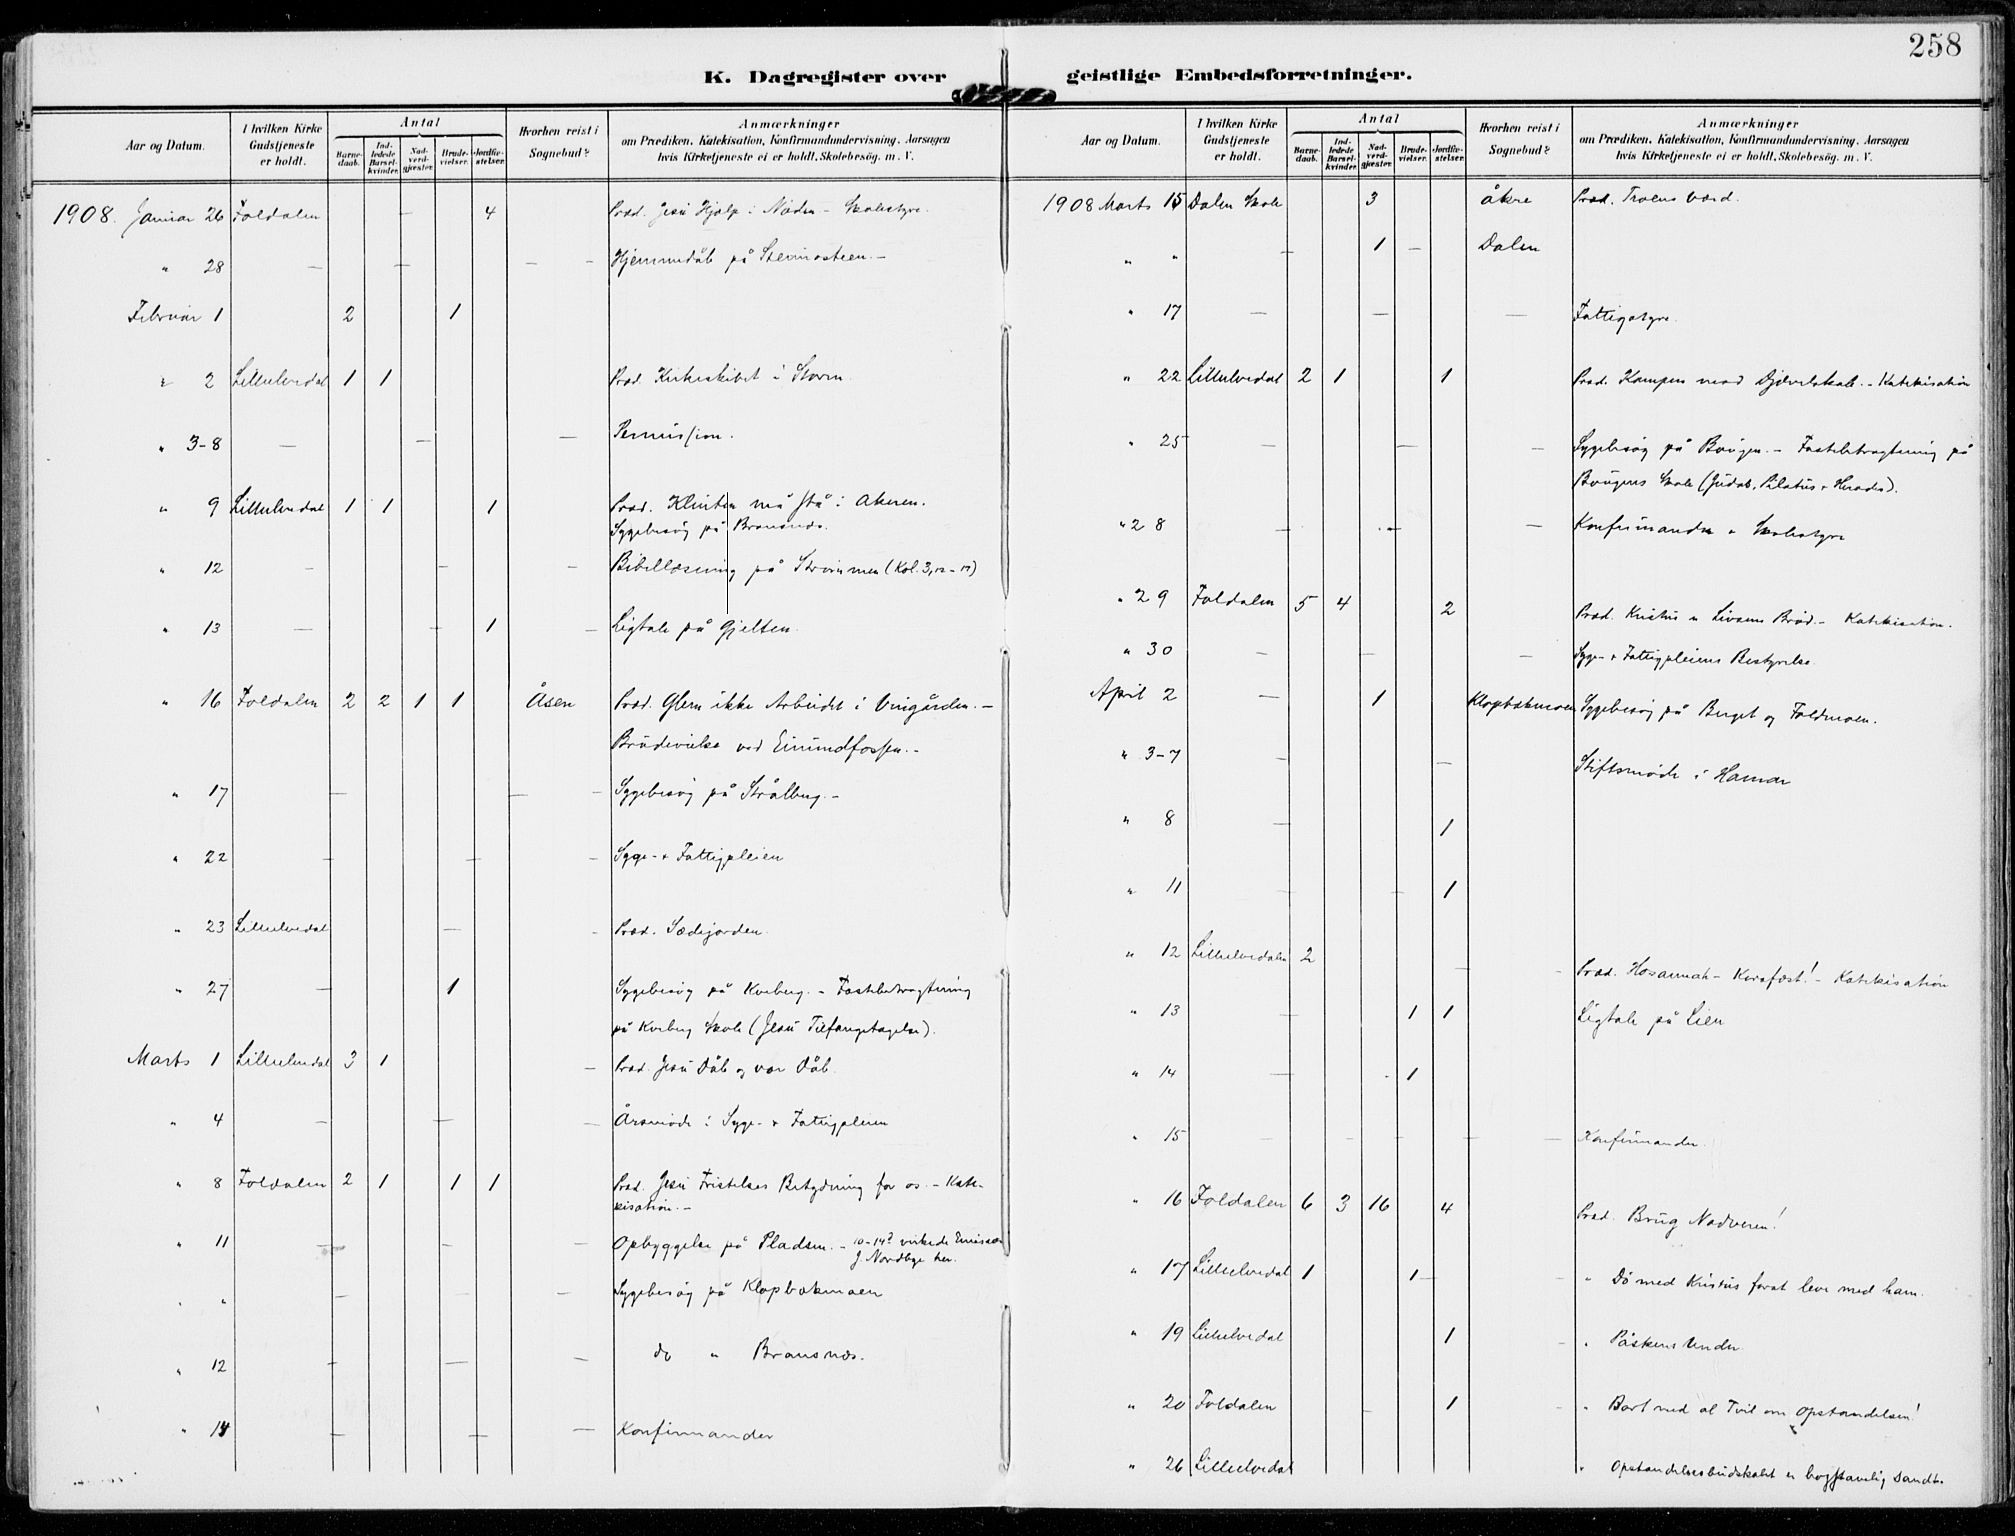 258
K. Dagregister over geistlige Embedsforretninger.
Aar og Datum.
I hvilken Kirke Gudstjeneste er holdt.
Antal
Barne-daab.
Ind-ledede Barsel-kvinder.
Nad-verd-gjæster.
Brude-vielser.
Jordfæ-stelser.
Hvorhen reist i Sognebud?
Anmærkninger
om Prædiken, Katekisation, Konfirmandundervisning, Aarsagen
hvis Kirketjeneste ei er holdt, Skolebesøg m. V.
1908. Januar 26 Foldalen — 4 Præd. Jesu Hjælp i Nøden – Skolestyre.
" 28 — — — — Hjemmedåb på Steimosteen. –
Februar 1 2 1
" 2 Lilleelvedal 1 1 Præd. Kirkeskibet i Storm.
" 3-8 — — — Permission.
" 9 Lilleelvedal 1 1 1 Præd. Klinten må stå i Akeren.
Sygebesøg på Bransnes.
" 12 — — — Bibellæsning på Streimmen (Kol. 3,12-17)
" 13 — — 1 — Ligtale på Gjelten.
" 16 Foldalen 2 2 1 1 Åsen Præd. Glem ikke Arbeidet i Vingården. –
Brudevielse ved Einundfossen. –
" 17 — — — Sygebesøg på Strålberg. –
" 22 — — — Syge- + Fattigpleien
" 23 Lilleelvedal — - Præd. Sædejorden.
" 27 — 1 Sygebesøg på Kveberg. – Fastebetragtning
på Kveberg Skole (Jesu Tilfangetagelse).
Marts 1 Lilleelvedal 3 1 — Præd. Jesu Dåb og vor Dåb.
" 4 — — — Årsmøde i Syge- + Fattigpleien
" 8 Foldalen 2 1 1 1 Præd. Jesu Fristelses Betydning for os. – Kate-
kisation. –
" 11 — — — Opbyggelse på Pladsen. – 10-14? virkede Emissær
J. Nordbye her.
" " — — — Sygebesøg på Klopbakmoen
" 12 — — — do " Bransnes.
" 14 — — — Konfirmander
Aar og Datum.
I hvilken Kirke Gudstjeneste er holdt.
Antal
Barne-daab.
Ind-ledede Barsel-kvinder.
Nad-verd-gjæster.
Brude-vielser.
Jordfæ-stelser.
Hvorhen reist i Sognebud?
Anmærkninger
om Prædiken, Katekisation, Konfirmandundervisning, Aarsagen
hvis Kirketjeneste ei er holdt, Skolebesøg m. V.
1908 Marts 15 Dalen Skole 3 Åkre Præd. Troens Værd.
" " — 1 — Dalen
" 17 — — — Fattigstyre.
" 22 Lilleelvedal 2 1 1 Præd. Kampen mod Djævelskab. – Katekisation
" 25 — — — Sygebesøg på Baugen. – Fastebetragtning på
Baugens Skole (Judas, Pilatus + Herodes).
" 28 — — — Konfirmander + Skolestyre
" 29 Foldalen 5 4 2 Præd. Kristus er Livsens Brød. – Katekisation.
" 30 — — — Syge- + Fattigpleiens Bestyrelse
April 2 — 1 Klopbakmoen Sygebesøg på Berget og Foldmoen.
" 3-7 — — Stiftsmøde i Hamar
" 8 — 1
" 11 — — 1
" 12 Lilleelvedalen 2 — - Præd. Hosannah – Korsfæst! – Katekisation
" 13 — 1 1 Ligtale på Lien
" 14 — - 1
" 15 — — — — — Konfirmander.
" 16 Foldalen 6 3 16 4 Præd. Brug Nadveren!
" 17 Lilleelvedal 1 1 — - " Dø med Kristus forat leve med ham.
" 19 Lilleelvedal 1 - " Påskens Under.
" 20 Foldalen - 1 - " Bort med al Tvil om Opstandelsen!
" 26 Lilleelvedal " Opstandelsesbudskabet er bogstavelig Sandt.